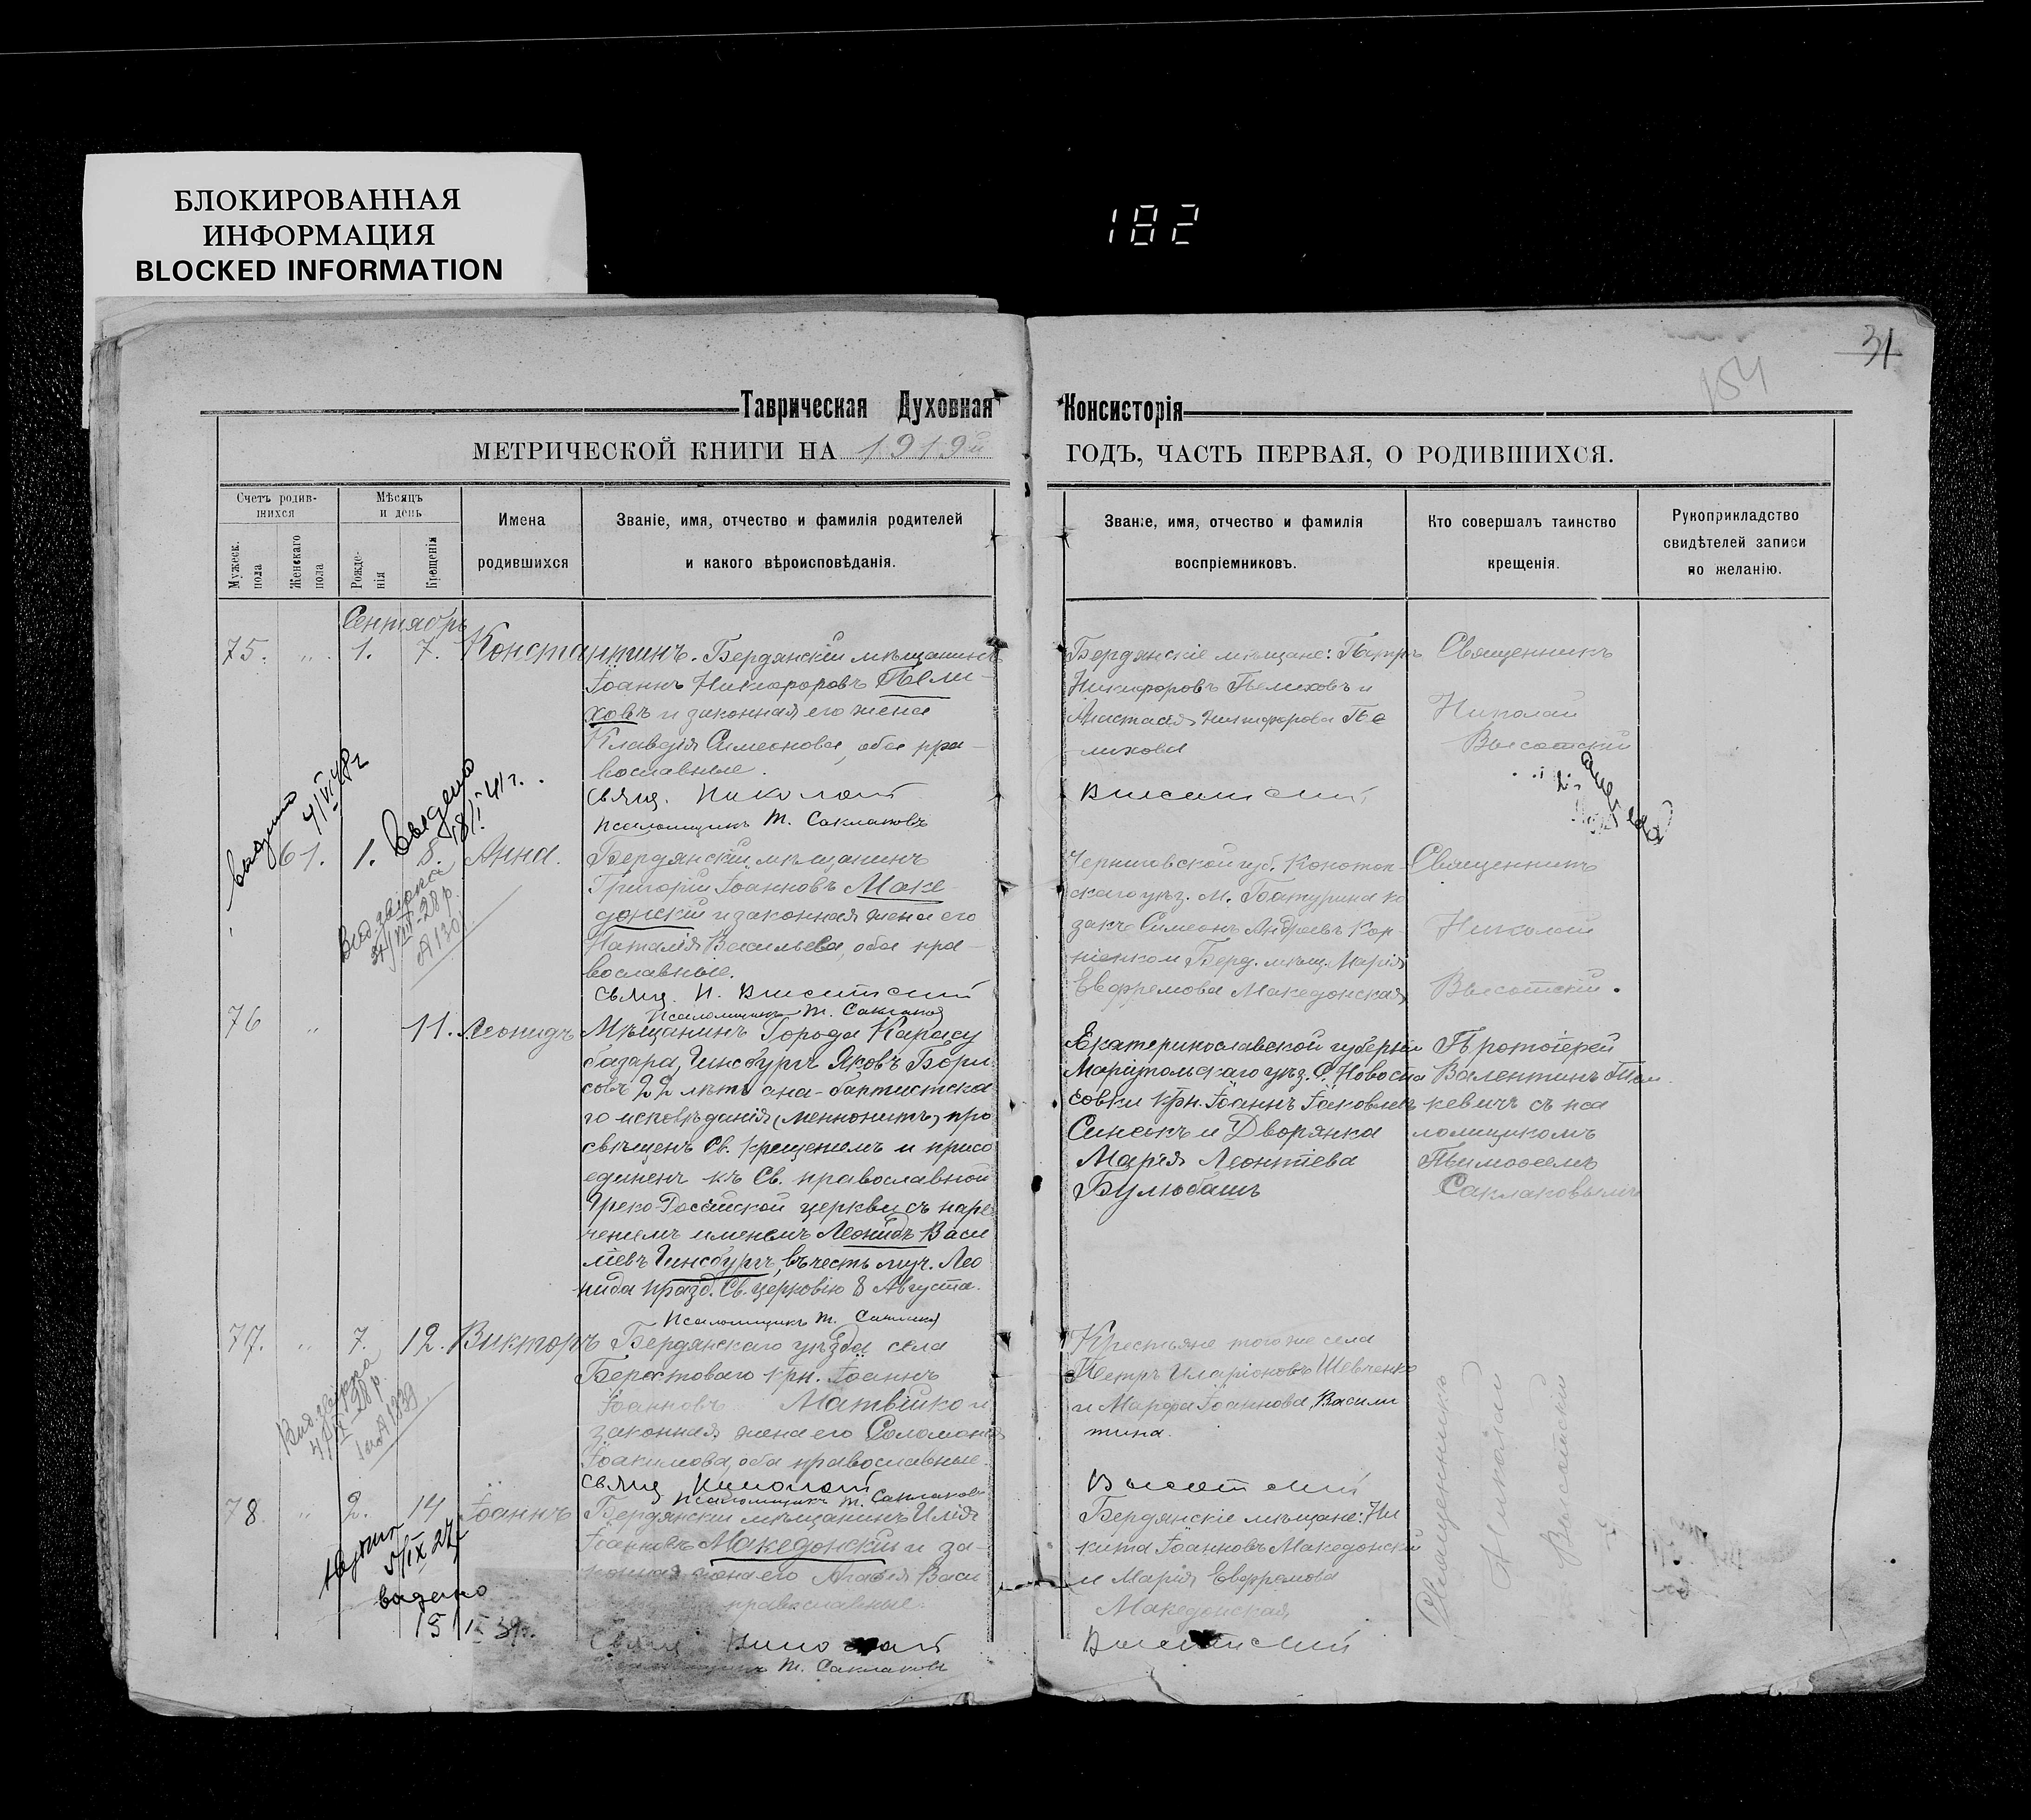 БЛОКИРОВАННАЯ
ИНФОРМАЦИЯ
BLOCKED INFORMATION
182
31
154
Таврическая Духовная Консисторія
МЕТРИЧЕСКОЙ КНИГИ НА 1919й ГОДЪ, ЧАСТЬ ПЕРВАЯ, О РОДИВШИХСЯ.
Счетъ родив-
шихся
Мужеск.
пола
Женскаго
пола
Мѣсяцъ
и день
Рожде-
нія
Крещенія
Имена
родившихся
Званіе, имя, отчество и фамилія родителей
и какого вѣроисповѣданія.
Званіе, имя, отчество и фамилія
воспріемниковъ.
Кто совершалъ таинство
крещенія.
Рукоприкладство
свидѣтелей записи
по желанію.
Сентябрь
75. " 1. 7. Константинъ.
Бердянскій мѣщанинъ
Іоаннъ Никифоровъ Пели-
ховъ и законная его жена
Клавдія Симеонова, оба пра-
вославные.
Свящ. Николай Высотскій
Псаломщикъ Т. Саклаковъ
Бердянскіе мѣщане: Петръ
Никифоровъ Пелиховъ и
Анастасія Никифорова Пе
лихова
Священникъ
Николай
Высотскій
выдано
4/VI 48г
Выдано
18/I 41г.
61. 1. 8. Анна.
Бердянскій мѣщанинъ
Григорій Іоанновъ Маке
донскій и законная жена его
Наталія Васильева, оба пра-
вославные.
Свящ. Н. Высотскій
Псаломщикъ Т. Саклаковъ
Черниговской губ. Конотоп-
скаго уѣз. м. Батурина ко
закъ Симеонъ Андреевъ Кор-
ніенко и Берд. мѣщ. Марія
Евфремова Македонская
Священникъ
Николай
Высотскій.
76 " 11. Леонидъ
Мѣщанинъ Города Карасу
базара, Гинсбургъ Яковъ Бори
совъ 22 лѣтъ ана-баптистска
го исповѣданія (меннонитъ) про
свѣщенъ Св. Крещеніемъ и присо
единенъ къ Св. православной
Греко-Россійской церкви съ наре
ченіемъ именемъ Леонидъ Васи
ліевъ Гинсбургъ, въ честь муч. Лео
нида празд. Св. церковію 8 Августа.
Екатеринославской губерніи
Маріупольскаго уѣз. С. Новоспа
совки крн. Іоаннъ Іаковлевъ
Синекъ и Дворянка
Марія Леонтіева
Булюбашъ
Протоіерей
Валентинъ
кевичъ съ пса
ломщикомъ
Тимофеемъ
Саклаковымъ
Псаломщикъ Т.
77. " 7. 12. Викторъ
Бердянскаго уѣзда села
Берестоваго крн. Іоаннъ
Іоанновъ Матвійко и
законная жена его Соломонія
Іоакимова, оба православные.
Свящ Николай Высотскій
Псаломщикъ Т. Саклаковъ
Крестьяне того же села
Петръ Иларіоновъ Шевченко
и Марфа Іоаннова Васили
шина.
Священникъ
Николай
Высотскій
78. " 2. 14 Іоаннъ
Бердянскій мѣщанинъ Илія
Іоанновъ Македонскій и за-
конная жена его Агафія Васи
православные.
Свящ Николай Высотскій
Псаломщикъ Т. Саклаковъ
Бердянскіе мѣщане: Ни
кита Іоанновъ Македонскій
и Марія Евфремова
Македонская
5/IX 27
выдано